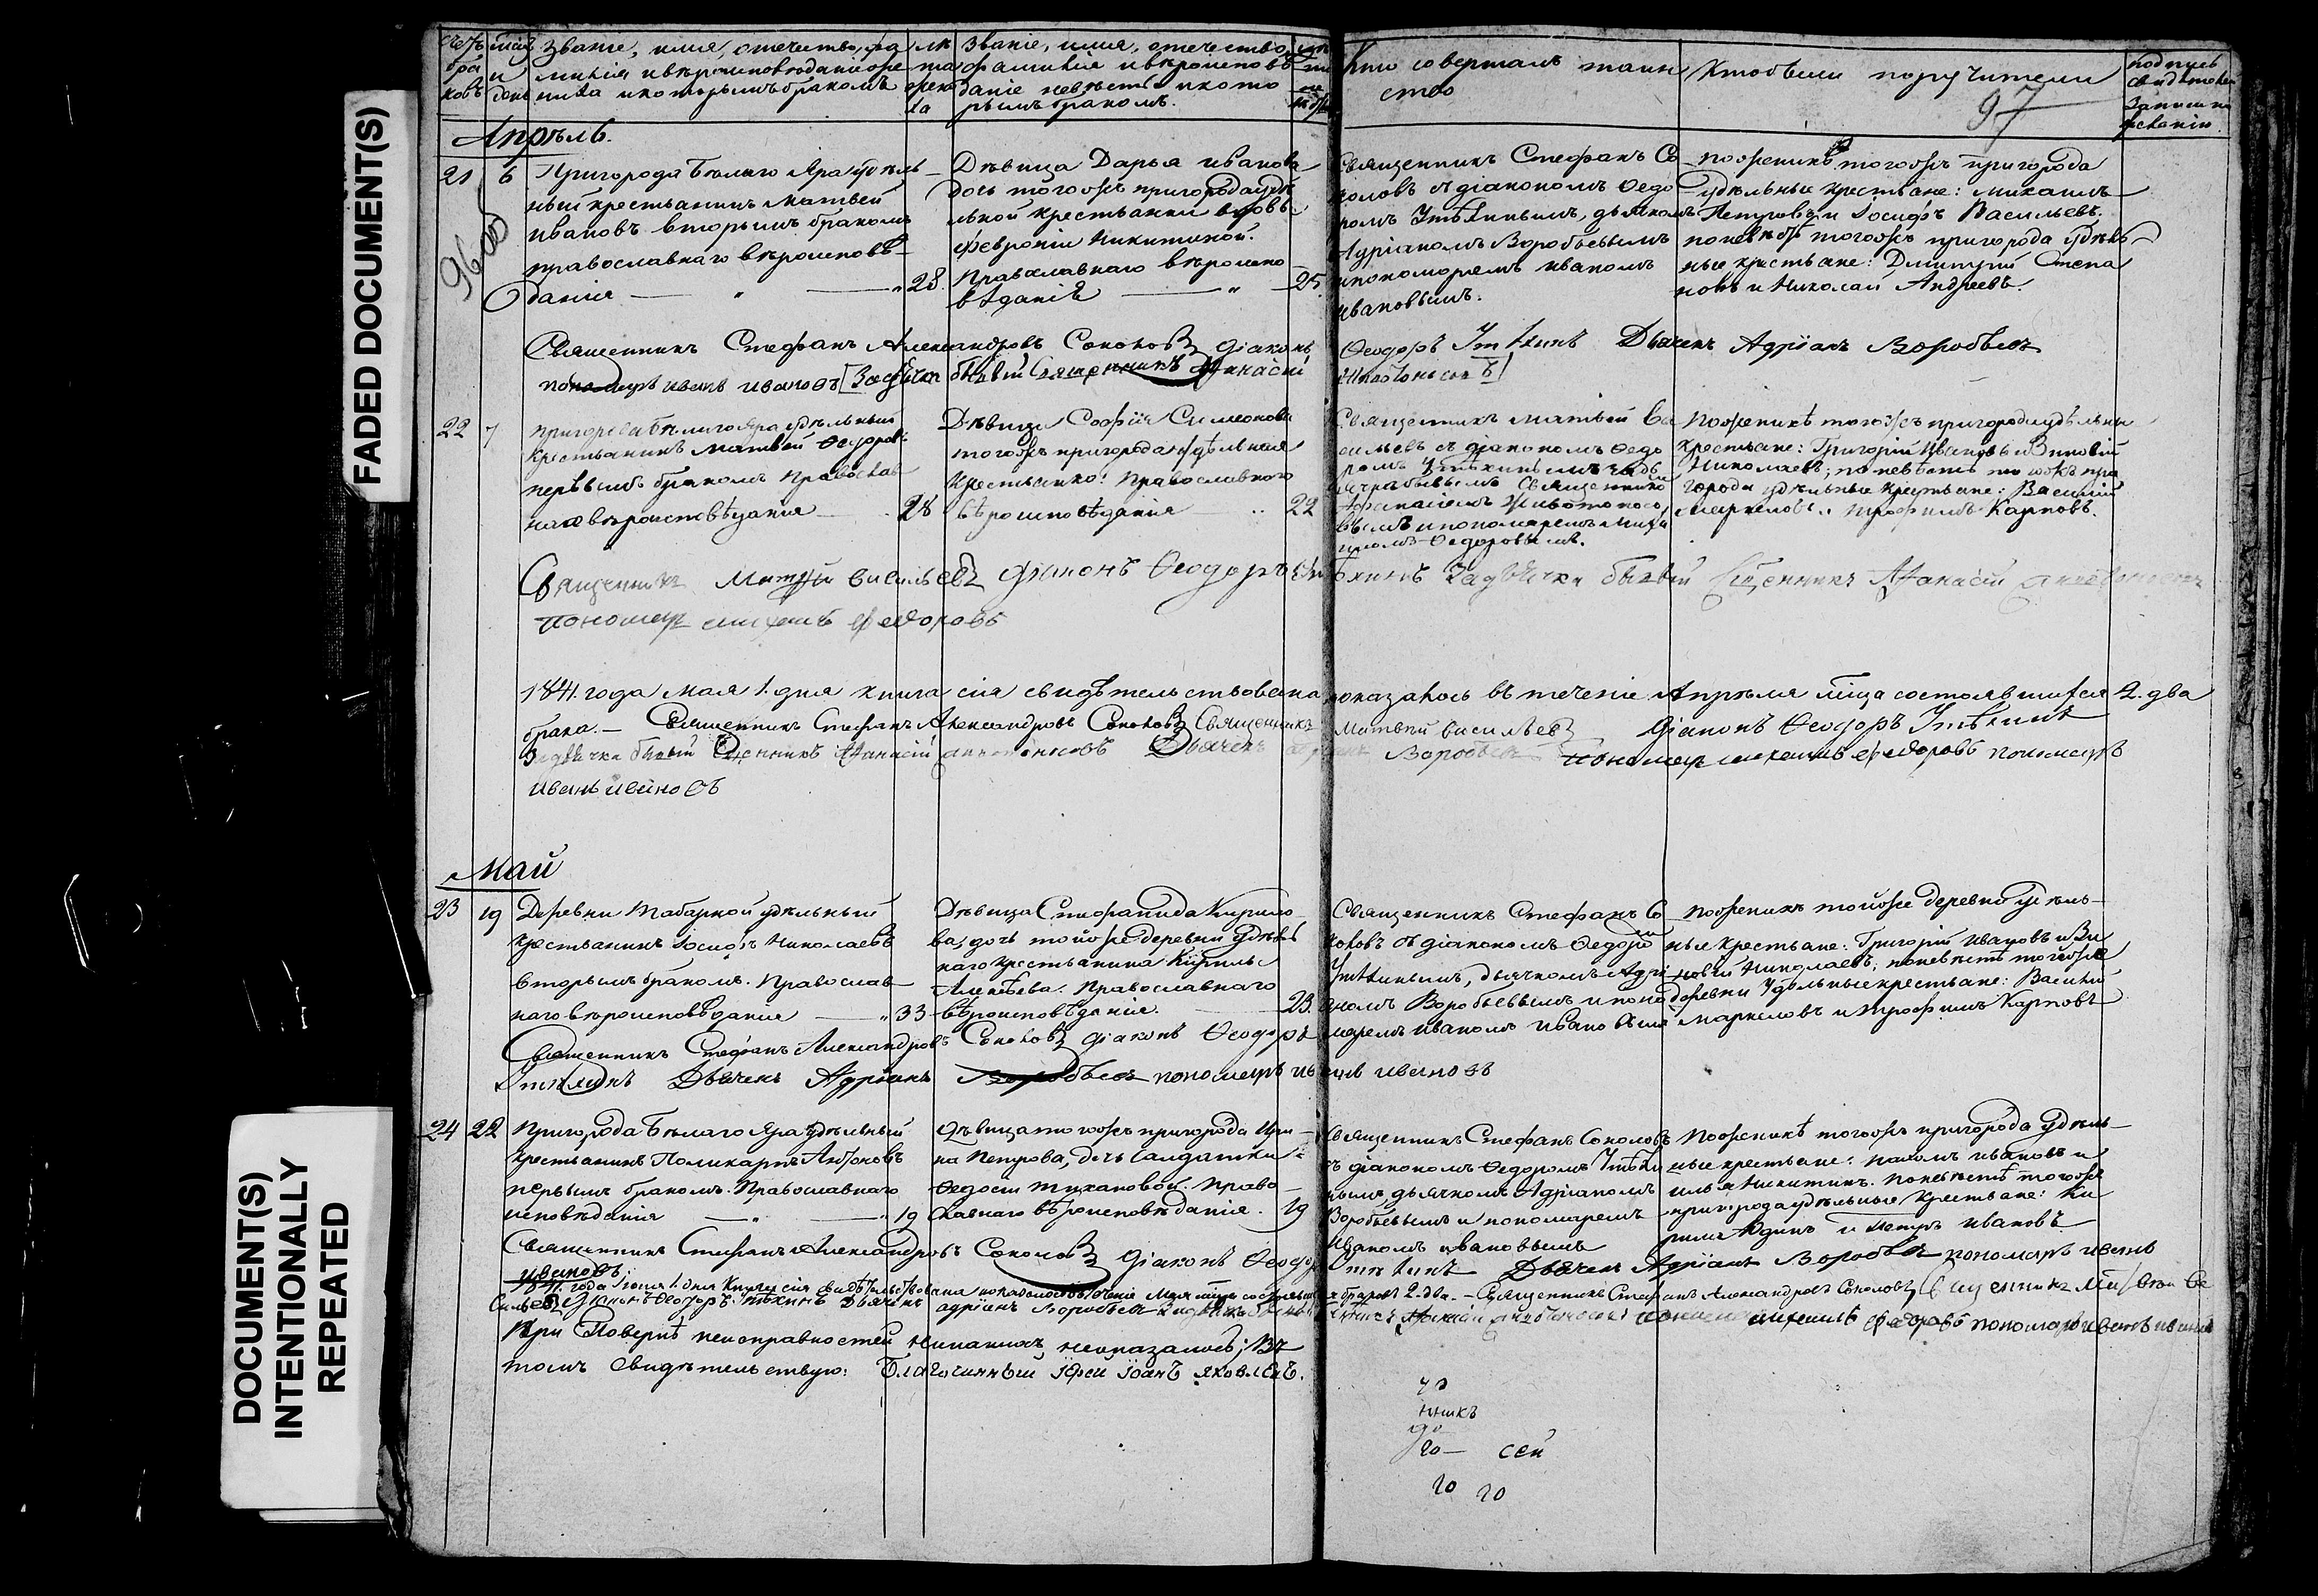 FADED DOCUMENT(S)
DOCUMENT(S)
INTENTIONALLY
REPEATED
Званіе, имя, отечество, фа
милія и вѣроисповѣданіе же
ниха и которымъ бракомъ
Званіе, имя, отечество
фамилія и вѣроиспов
даніе невѣсты и кото
рымъ бракомъ.
Кто совершалъ таин
ство
Кто были поручители
97
подпись
свидѣтелей
записи по
желанію.
Апрѣль.
21 6
Пригорода Бѣлаго Яра удѣль
ный крестьянинъ Матвей
Ивановъ вторымъ бракомъ
православнаго вѣроисповѣ
данія 28.
Дѣвица Дарья Иванова
дочь тогожъ пригорода удѣ
льной крестьянки вдовы
Февроніи Никитиной.
Православнаго вѣроиспо
вѣданія 25.
Священникъ Стефанъ Со
коловъ съ діакономъ Ѳедо
ромъ Утѣхинымъ, дьячкомъ
Адріаномъ Воробьевымъ
и пономаремъ Иваномъ
Ивановымъ.
По женихѣ тогожъ пригорода
удѣльные крестьяне: Михаилъ
Петровъ и Іосифъ Васильевъ.
по невѣстѣ тогожъ пригорода удѣль
ные крестьяне: Димитрій Степа
новъ и Николай Андреевъ.
Священникъ Стефанъ Александровъ Соколовъ діаконъ Ѳеодоръ Утѣхинъ Дьячекъ Адріанъ Воробьевъ
пономарь Иванъ Ивановъ Заштатный бывый Священникъ Аѳанасій
22 7
Пригорода Бѣлаго Яра удѣльный
крестьянинъ Матвей Ѳедоровъ
первымъ бракомъ Православ
наго вѣроисповѣданія 28
Дѣвица Софія Симеонова
тогожъ пригорода удѣльная
крестьянка. Православнаго
вѣроисповѣданія 22
Священникъ Матвей Ва
сильевъ съ діакономъ Ѳедо
ромъ Утѣхинымъ
бывымъ Священнико
и пономаремъ Миха
иломъ Ѳедоровымъ.
По женихѣ тогожъ пригорода удѣльны
крестьяне: Григорій Ивановъ и Зиновій
Николаевъ; по невѣстѣ того жъ при
города удѣльные крестьяне: Василій
Маркеловъ и Трофимъ Карповъ.
Священникъ Матвѣй Васильевъ діаконъ Ѳеодоръ Утѣхинъ бывый Священникъ Аѳанасій
пономарь Михаилъ Ѳедоровъ
1841. года Мая 1. дня книга сія свидѣтельствована показалось въ теченіе Апрѣля мѣсяца состоявшихся 2. два
брака. Священникъ Стефанъ Александровъ Соколовъ Священникъ Матвѣй Васильевъ Діаконъ Ѳеодоръ Утѣхинъ
бывый Священникъ Аѳанасій Дьячекъ Воробьевъ пономарь Михаилъ Ѳедоровъ пономарь
Иванъ Ивановъ
Май
23 19
Деревни Табарной удѣльный
крестьянинъ Іосифъ Николаевъ
вторымъ бракомъ. Православ
наго вѣроисповѣданія 33
Дѣвица Стефанида Кирило
ва, дочь тойже деревни удѣль
наго крестьянина Кирилы
Алексѣева. Православнаго
вѣроисповѣданія. 23.
Священникъ Стефанъ Со
коловъ съ діакономъ Ѳедоромъ
Утѣхинымъ, дьячкомъ Адрі
аномъ Воробьевымъ и поно
маремъ Иваномъ Ивановымъ
По женихѣ тойже деревни удѣль
ные крестьяне: Григорій Ивановъ и Зи
новій Николаевъ; по невѣстѣ тогоже
деревни Удѣльные крестьяне: Василій
Маркеловъ и Трофимъ Карповъ
Священникъ Стефанъ Александровъ Соколовъ діаконъ Ѳеодоръ
Утѣхинъ Дьячекъ Адріанъ Воробьевъ пономарь Иванъ Ивановъ
24 22
Пригорода Бѣлаго Яра удѣльный
крестьянинъ Поликарпъ Антоновъ
первымъ бракомъ. Православнаго
исповѣданія 19
Дѣвица тогожъ пригорода Ири
на Петрова, дочь Салдатки
Ѳедосьи Тихановой. Право
славнаго вѣроисповѣданія. 19
Священникъ Стефанъ Соколовъ
съ діакономъ Ѳедоромъ Утѣхи
нымъ, дьячкомъ Адріаномъ
Воробьевымъ и пономаремъ
Иваномъ Ивановымъ
По женихѣ тогожъ пригорода Удѣль
ные крестьяне: Пахомъ Ивановъ и
Илья Никитинъ. По невѣстѣ тогожъ
пригорода удѣльные крестьяне: Ки
рила Юдинъ и Петръ Ивановъ
Священникъ Стефанъ Александровъ Соколовъ діаконъ Ѳеодоръ Утѣхинъ Дьячекъ Адріанъ Воробьевъ пономарь Иванъ
Ивановъ.
1841. года Іюня 1. дня Книга сія свидѣтельствована показалось въ теченіе Мая мѣсяца состоявшихся браковъ 2. два. Священникъ Стефанъ Александровъ Соколовъ, Священникъ Матвѣй Ва
сильевъ Діаконъ Ѳеодоръ Утѣхинъ Дьячекъ Адріанъ Воробьевъ пономарь Михаилъ Ѳедоровъ пономарь Иванъ Ивановъ
При Повѣркѣ неисправностей никакихъ неоказалось; Въ
томъ свидѣтельствую: Благочинный Іерей Іоаннъ Яковлевъ.
20 сей
20 20